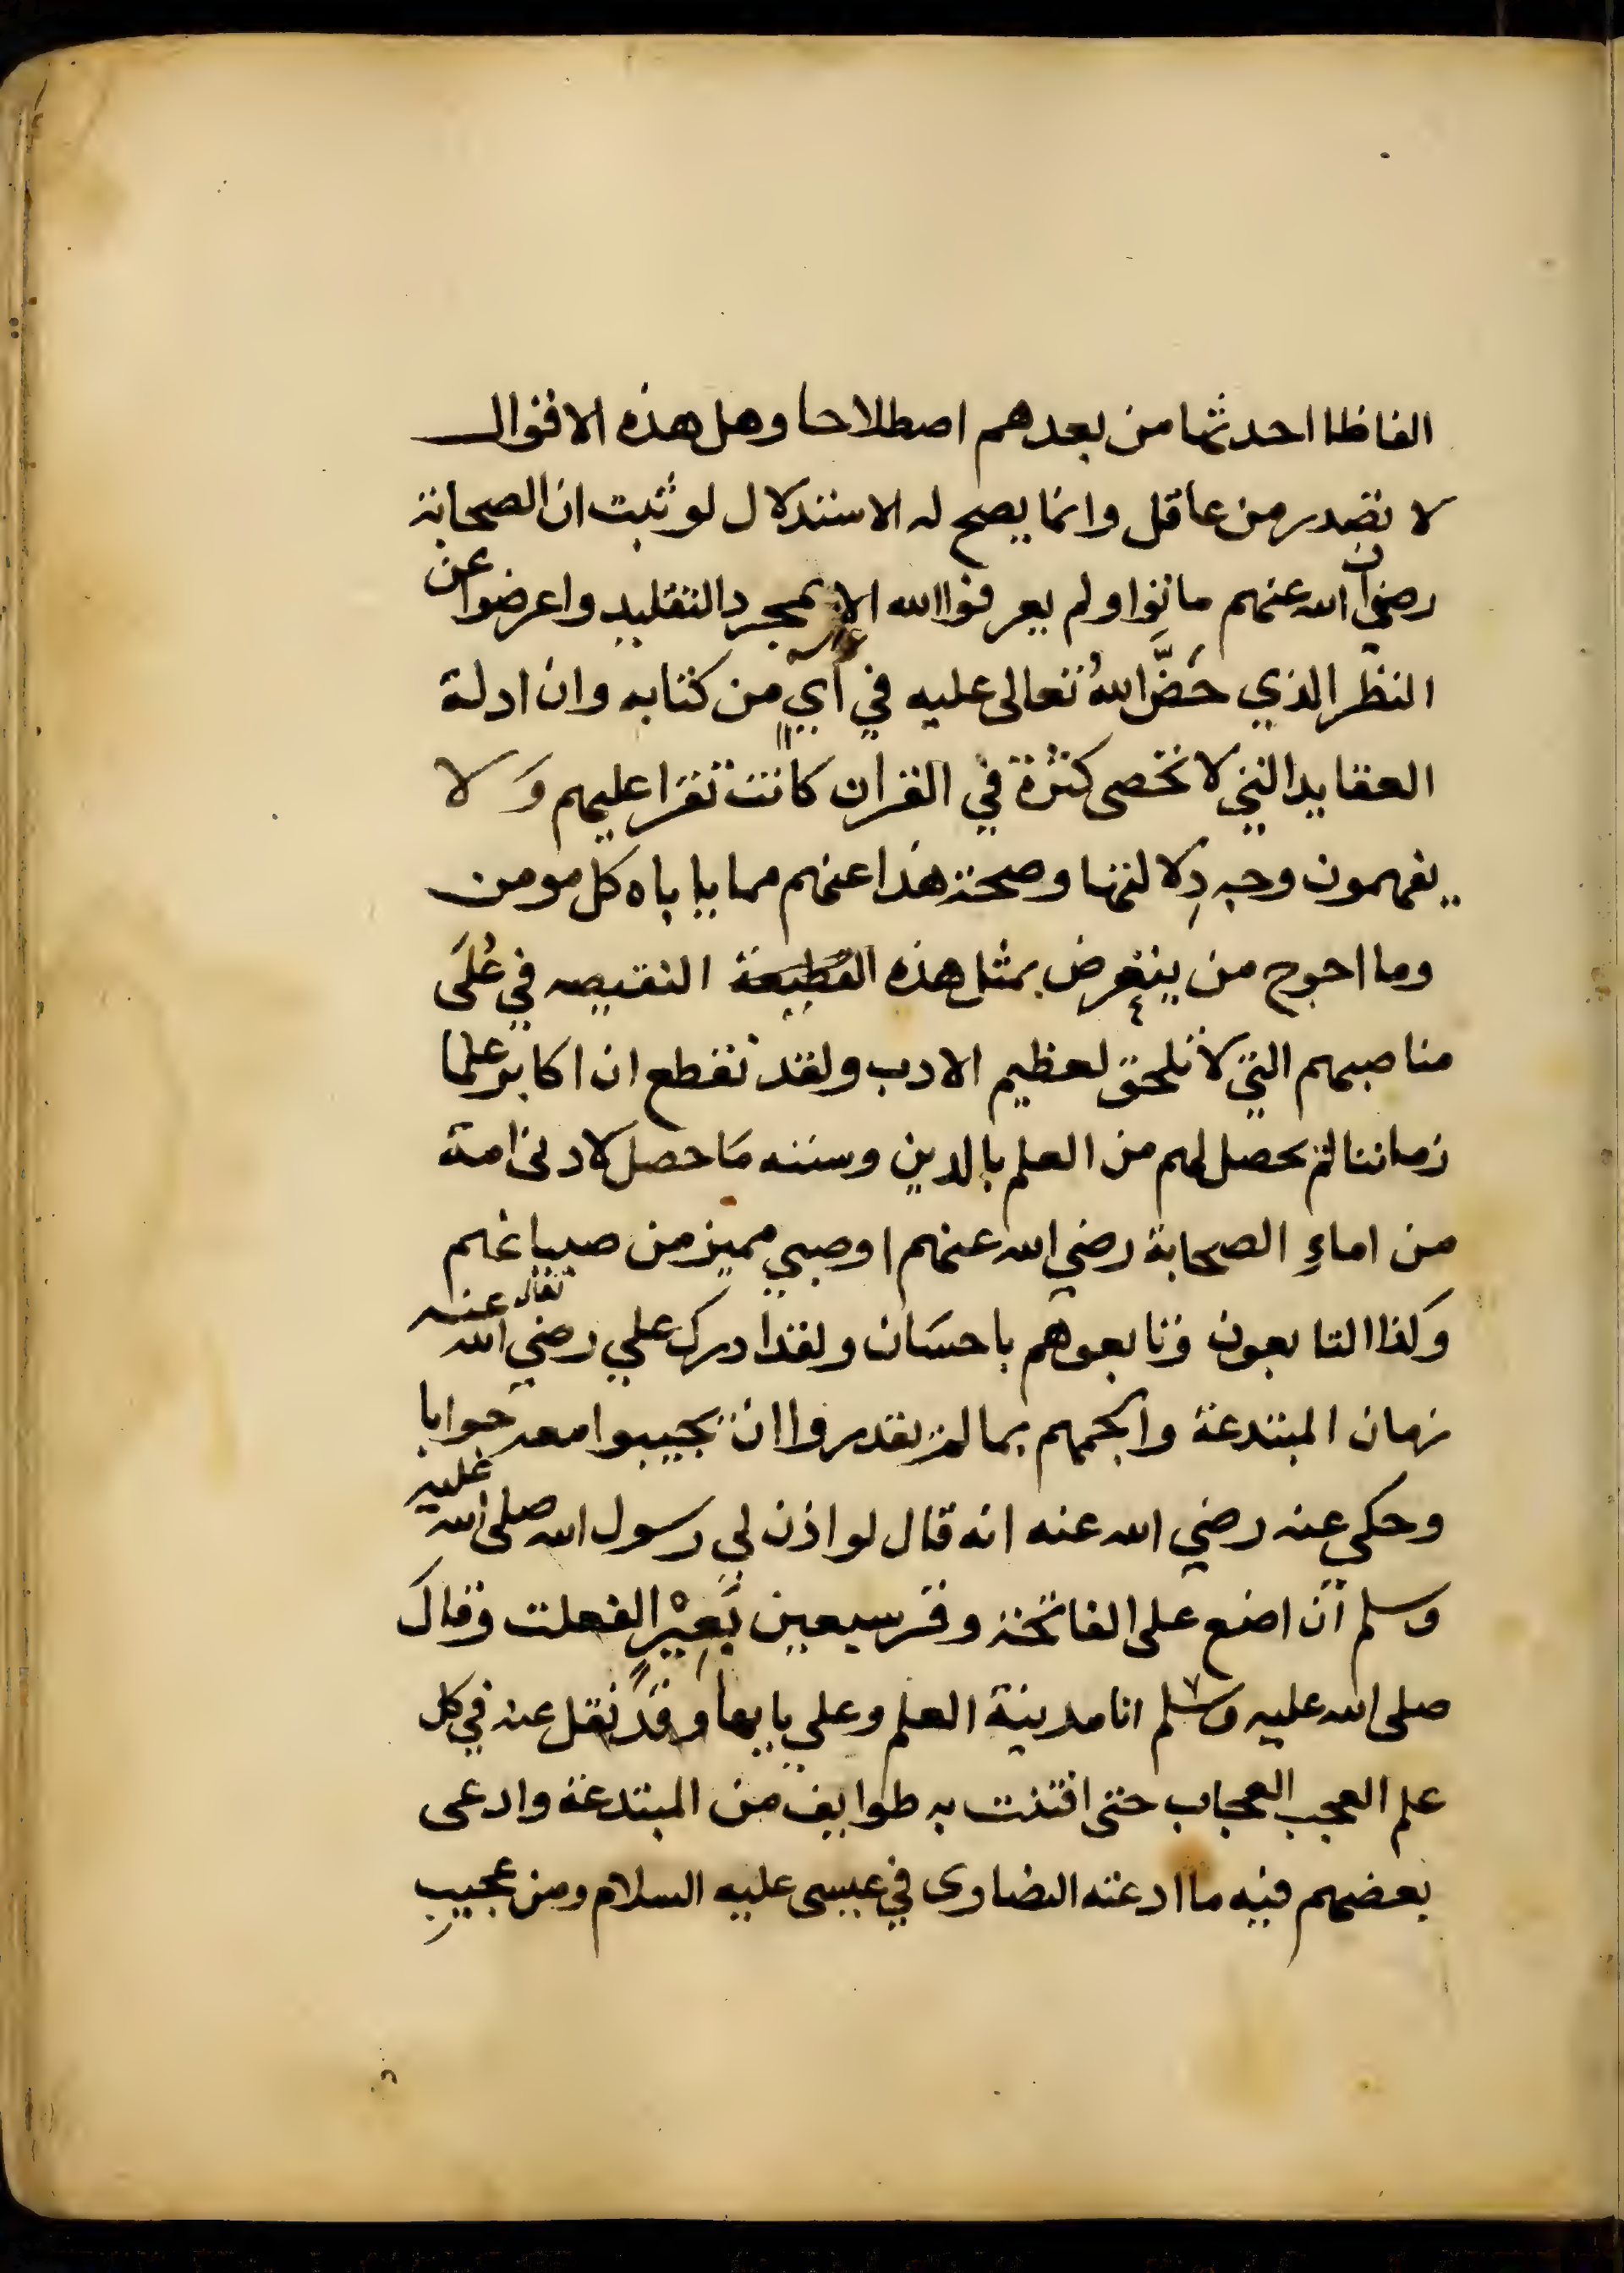 الفاظا احدثها من بعدهم اصطلاحا وهل هذه الاقوال
لا تصدر من عاقل وانما يصح له الاستدلال لو ثبت ان الصحابة
رضوان الله عنهم ماتوا ولم يعرفوا الله الا بمجرد التقليد واعرضوا عن
النظر الذي حَضَّ اللهُ تعالى عليه في آيٍ من كتابه وان ادلة
العقايد التي لا تحصى كثرة في القران كانت تقرا عليهم وَلا
يفهمون وجه دِلالتها وصحة هذا عنهم مما ياباه كل مومن
وما احوج من يتعرض بمثل هذه النقيصه في عُلَى
مناصبهم التي لا تلحق لعظيم الادب ولقد نقطع ان اكابر علما
زماننا لم يحصل لهم من العلم بالدين وسننه مَا حصل لادنى امة
من اماءِ الصحابة رضي الله عنهم او صبي مميز من صبيانهم
وَكذا التابعون وتابعوهم باحسَان ولقد ادرك علي رضي الله تعالى عنه
زمان المبتدعة وابكمهم بما لم يقدروا ان يجيبوا معه جوابا
وحكي عنه رضي الله عنه انه قال لو اذن لي رسول الله صلى الله عليه
وسلم ان اضع على الفاتحة وقر سبعين بَعِيْرًا لفعلت وقال
صلى الله عليه وسلم انا مدينة العلم وعلي بابها وقد نقل عنه في كل
علم العجب العجاب حتى افتتنت به طوايف من المبتدعة وادعى
بعضهم فيه ما ادعته النصارى في عيسى عليه السلام ومن عجيب